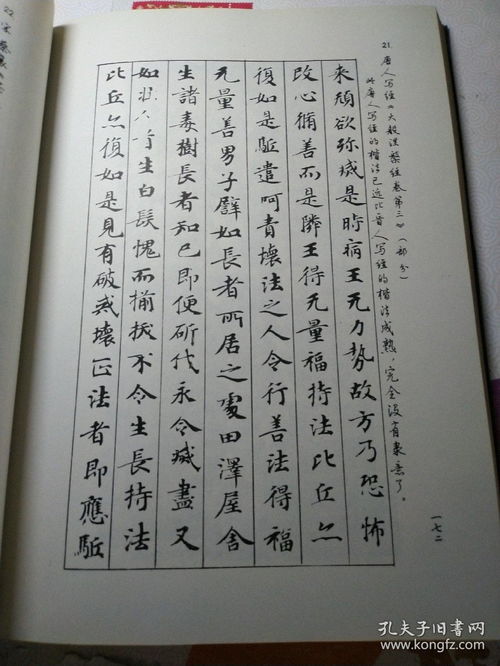 21. 唐人写经《大般涅槃经卷第三》(部分)
此唐人写经的楷法已远比晋人写经的楷法成熟，完全没有隶意了。
来規欲殄滅是時病王无力勢故方乃恐怖
改心脩善而是隣王得无量福持法比丘亦
復如是駈遣呵責壞法之人令行善法得福
无量善男子譬如長者所居之處田澤屋舍
生諸毒樹長者知已即便斫伐永令滅盡又
如壮人首生白髮愧而揃拔不令生長持法
比丘亦復如是見有破戒壞正法者即應駈
一七二
22.
孔夫子旧书网
www.kongfz.com